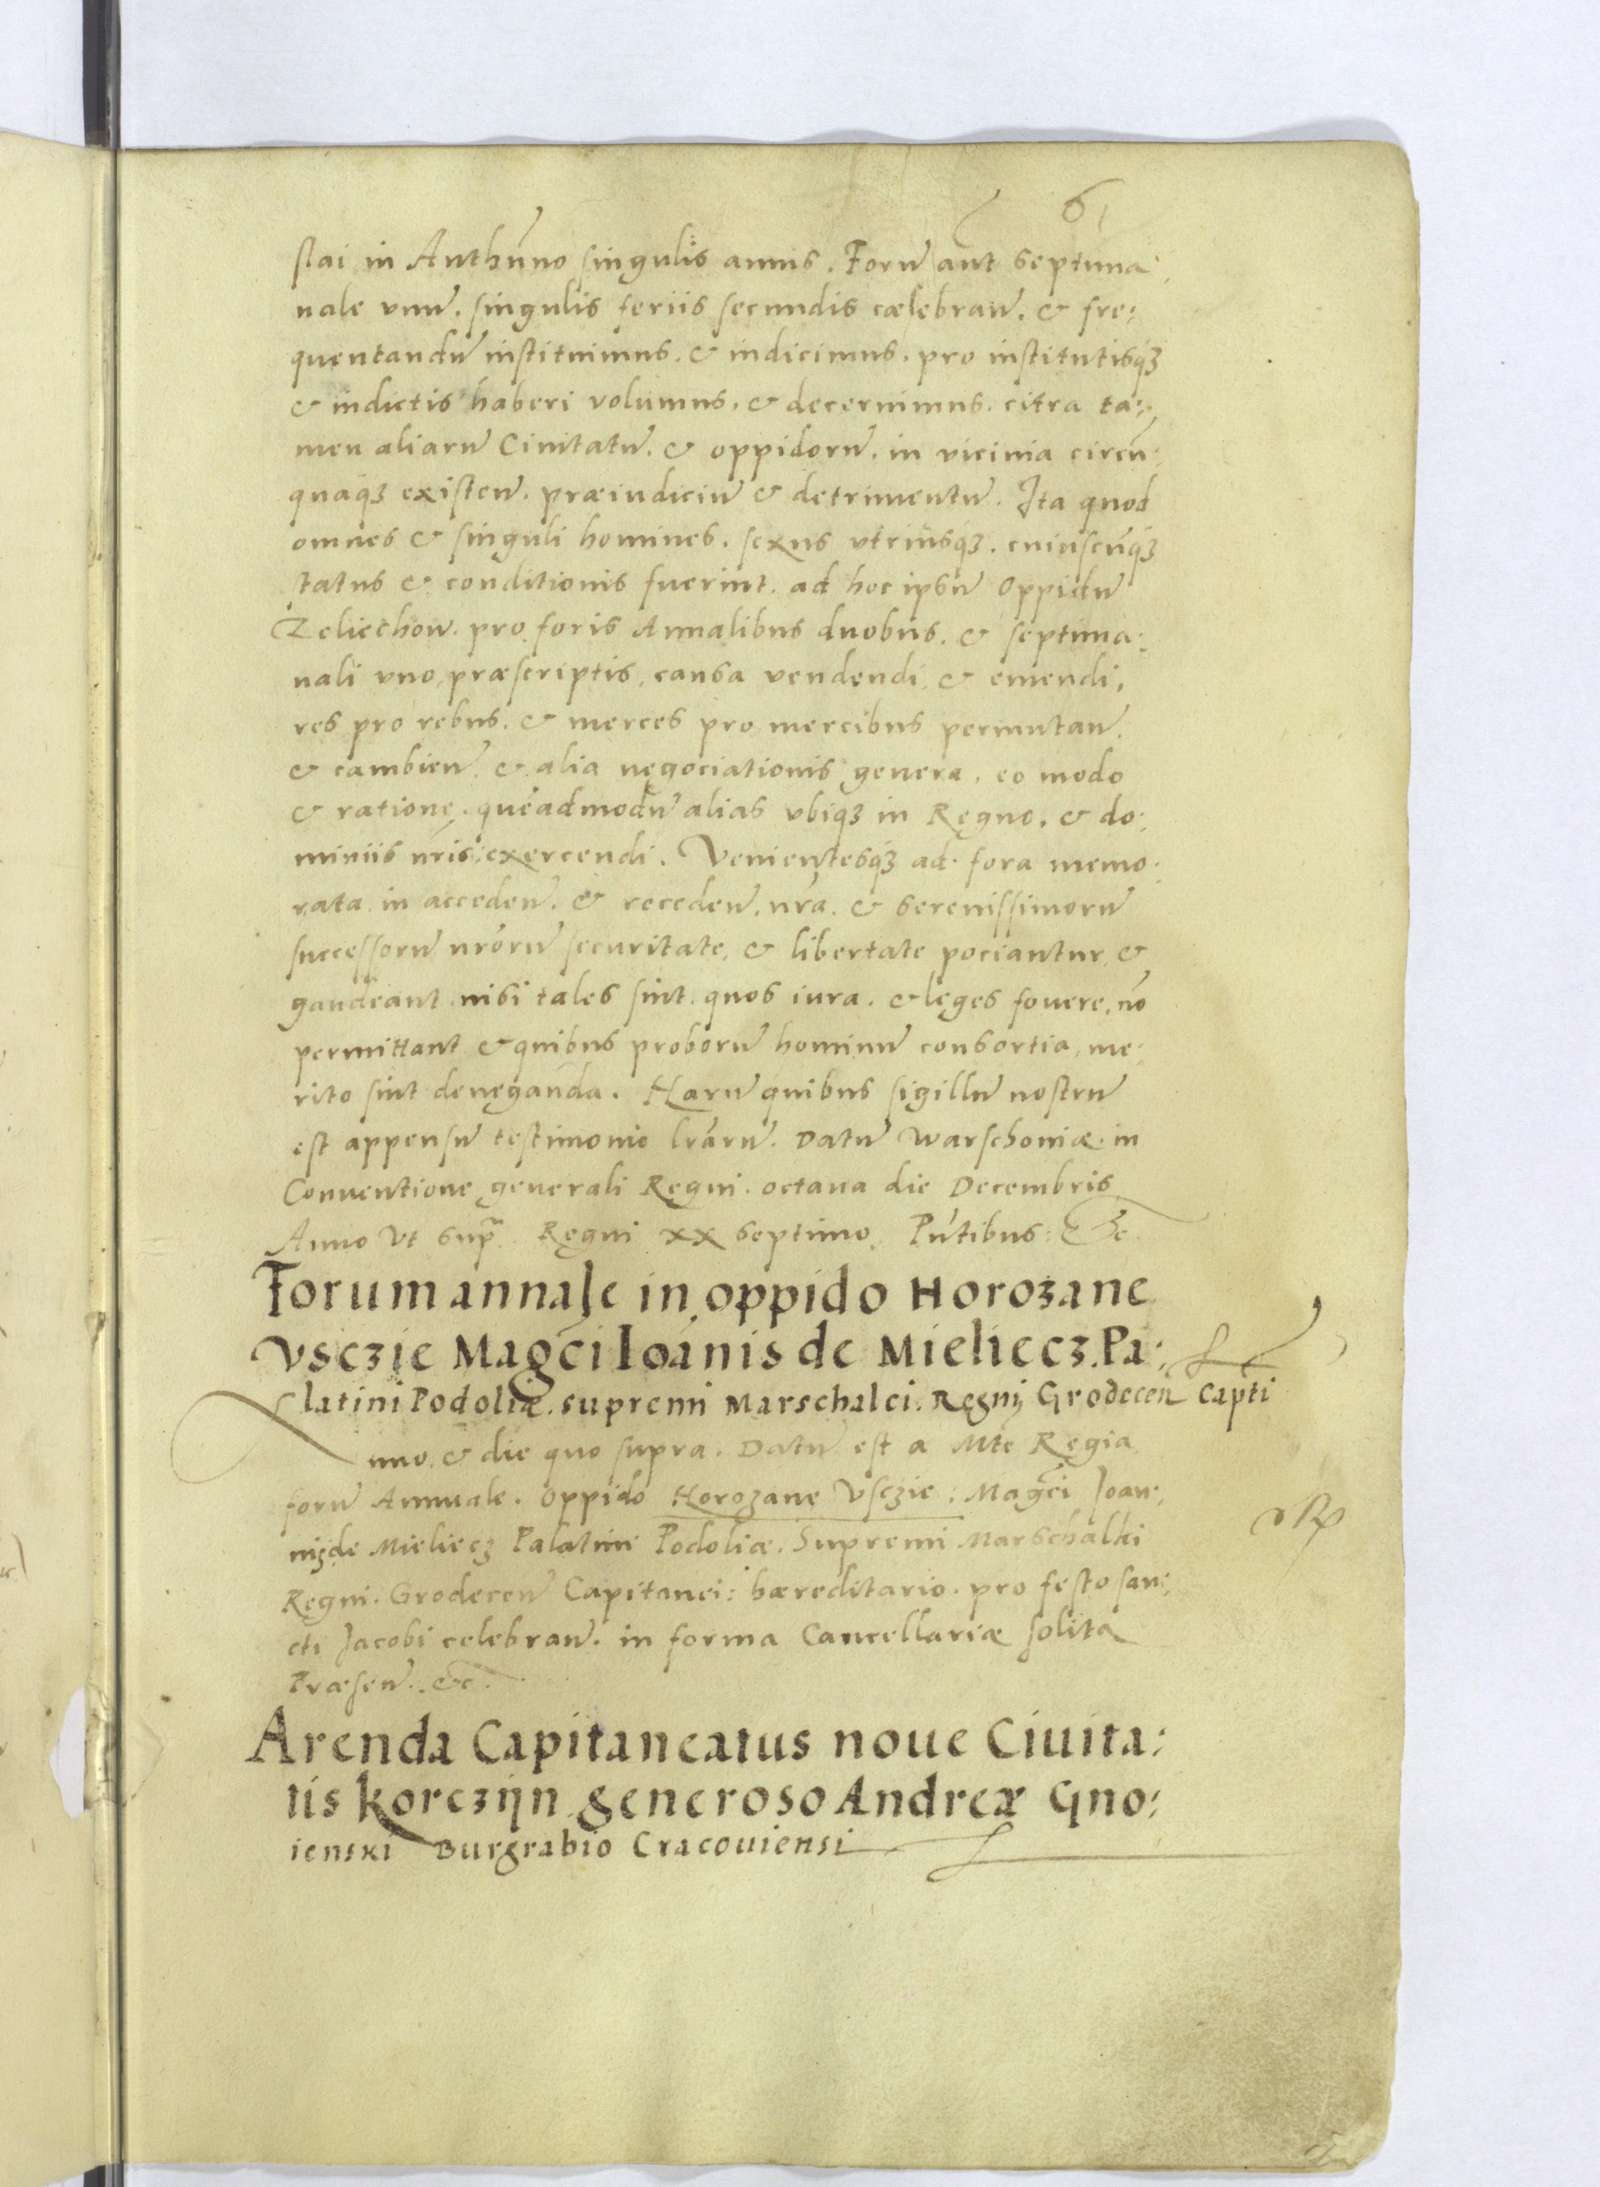 6
slai in Anthũno singulis annis. Forũ aũt septima
nale vnũ. singulis feriis secundis cælebrañ. & fre:
quentandũ instituimus. & indicimus. pro institutisq3
& indictis haberi volumus. & decernimus. citra ta:
men aliarũ Ciuitatũ. & oppidorũ. in vicinia circũ:
quaq3 existeñ. præiudiciũ & detrimentũ. Ita quod
omnes & singuli homines. sexus vtriusq3. cuiuscũq3
tatus & conditionis fuerint. ad hoc ipsũ Oppidũ
Zeliechow. pro foris Annalibus duobus. & septima:
nali vno præscriptis, causa vendendi & emendi,
res pro rebus. & merces pro mercibus permutañ.
& cambieñ & alia negociationis genera, eo modo
& ratione. quẽadmodũ alias vbiq3 in Regno. & do:
miniis nr̃is exercendi. Venientesq3 ad fora memo:
rata in accedeñ. & recedeñ. nr̃a. & serenissimorũ
successorũ nr̃orũ securitate, & libertate pociantur, &
gaudeant. nisi tales sint. quos iura. & leges fouere, nõ
permittant & quibus proborũ hominũ consortia, me:
rito sint deneganda. Harũ quibus sigillũ nostrũ
est appensũ testimonio lr̃arũ. Datũ Warschouiæ. in
Conuentione generali Regni. octaua die Decembris
Anno Vt supr̃. Regni XX septimo. Pñtibus: &c
Forum annale in oppido Horozane
Vsczie Magc̃i Ioãnis de Mieliecz. Pa:
latini Podoliæ. supremi Marschalci. Regnij Grodeceñ Capti
nno & die quo supra. Datũ est a Mte Regia
forũ Annuale. Oppido Horozane Vsczie: Magc̃i Joan:
nis de Mieliecz Palatini Podoliæ. Supremi Marschalki
Regni. Grodeceñ Capitanei: hæreditario. pro festo san:
cti Jacobi celebrañ. in forma Cancellariæ solita
Præseñ. &c.
Arenda Capitaneatus noue Ciuita:
tis korczijn generoso Andreæ Gno:
ienski Burgrabio Cracouiensi